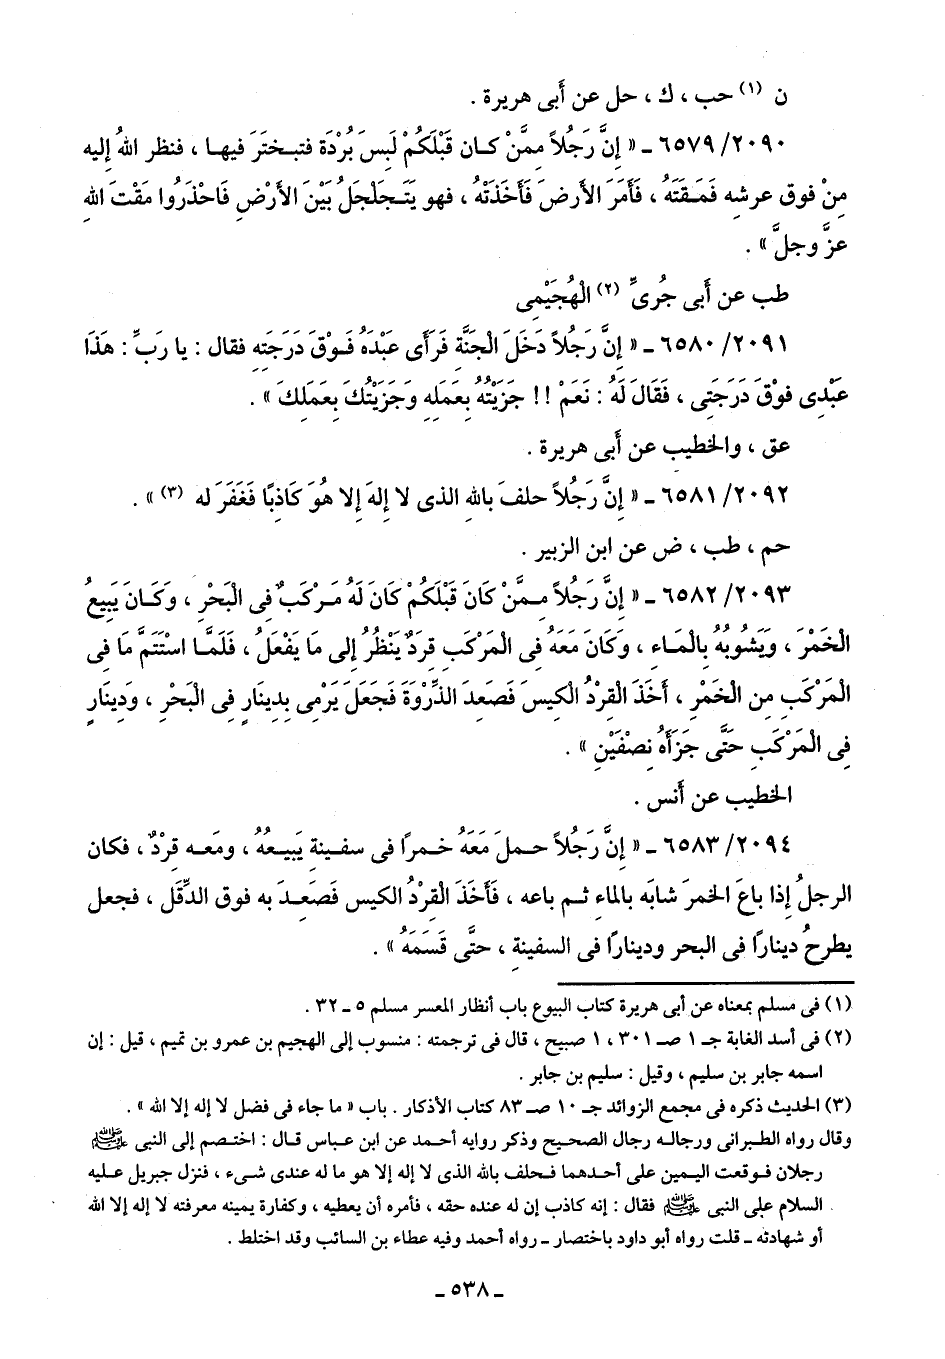 ن (١) حب ، ك ، حل عن أبى هريرة .
٦٥٧٩/٢٠٩٠ ـ « إنَّ رَجُلاً ممَّنْ كـان قَبْلَكُمْ لَبِسَ بُرْدَة فتبـختَرَ فيهـا ، فنظر اللهُ إليه
مِنْ فوق عرشه فَمَـقَتَهُ ، فَأَمَرَ الأرضَ فَأَخَذَتْهُ ، فهو يَتَـجلْجلُ بَيْنَ الأَرْضِ فَاحْذَرُوا مقْتَ الله
عزَّ وجلَّ » .
طب عن أبى جُرىٍّ (٢) الْهُجَيْمِى
٦٥٨٠/٢٠٩١ ـ « إنَّ رَجُلاً دَخَلَ الْجنَّةِ فرَأى عَبْدَهُ فَـوْقَ دَرَجَتِه فقال : يا ربِّ : هَذَا
عَبْدِى فوْقَ دَرَجَتِى ، فَقَالَ لَهُ : نَعَمْ !! جَزَيْتُهُ بِعَمَلِهِ وَجَزَيْتُكَ بِعَمَلِكَ » .
عق ، والخطيب عن أبى هريرة .
٦٥٨١/٢٠٩٢ ـ « إنَّ رَجُلاً حلفَ بالله الذى لا إلهَ إلا هُوَ كَاذبًا فَغَفَرَ له (٣) » .
حم ، طب ، ض عن ابن الزبير .
٦٥٨٢/٢٠٩٣ ـ « إنَّ رَجُلاً مـمَّنْ كَانَ قَبْلَكُمْ كَانَ لَهُ مَـرْكَبٌ فِى الْبَحْرِ ، وكَـانَ يَبِيعُ
الْخَمْرَ ، وَيَشُوبُهُ بِالْمَـاءِ ، وَكَانَ مَعَهُ فِى الْمَرْكَبِ قِردٌ يَنْظُرُ إلى مَا يَفْعَلُ ، فَلَمَّا اسْتَتَمَّ مَا فى
الْمَرْكَبِ مِن الْخَمْرِ ، أَخَذَ الْقِرْدُ الْكيسَ فَصَعِدَ الذِّرْوَةَ فَجَعَلَ يَرْمِى بِدِينَارٍ فِى الْبَحْرِ ، ودِينَارٍ
فِى الْمَرْكَبِ حَتَّى جَزَأَهُ نِصْفَيْنِ » .
الخطيب عن أنس .
٦٥٨٣/٢٠٩٤ ـ « إنَّ رَجُلاً حـملَ مَعَهُ خـمرًا فى سفـينة يَبِيـعُهُ ، ومَعـه قِرْدٌ ، فكان
الرجلُ إذا باعَ الخمرَ شابَه بالماءِ ثـم باعه ، فَأَخَذَ الْقِرْدُ الكيس فَصَعِـدَ به فوق الدِّقَل ، فجعل
يطرحُ دينارًا فى البحر ودينارًا فى السفينة ، حتَّى قَسَمَهُ » .
(١) فى مسلم بمعناه عن أبى هريرة كتاب البيوع باب أنظار المعسر مسلم ٥ ـ ٣٢ .
(٢) فى أسد الغابة جـ ١ صـ ٣٠١ ، ١ صبيح ، قال فى ترجمته : منسوب إلى الهجيم بن عمرو بن تميم ، قيل : إن
اسمه جابر بن سليم ، وقيل : سليم بن جابر .
(٣) الحديث ذكره فى مجمع الزوائد جـ ١٠ صـ ٨٣ كتاب الأذكار . باب « ما جاء فى فضل لا إله إلا الله » .
وقال رواه الطـبرانى ورجالـه رجال الصـحيح وذكر روايه أحمـد عن ابن عباس قـال : اختـصم إلى النبى ﷺ
رجلان فـوقعت اليـمين على أحـدهما فـحلف بالله الذى لا إله إلا هو ما له عندى شىء ، فنزل جبريل عليه
السلام على النبى ﷺ فقال : إنه كاذب إن له عنده حقه ، فأمره أن يعطيه ، وكفارة يمينه معرفته لا إله إلا الله
أو شهادته ـ قلت رواه أبو داود باختصار ـ رواه أحمد وفيه عطاء بن السائب وقد اختلط .
ـ ٥٣٨ ـ